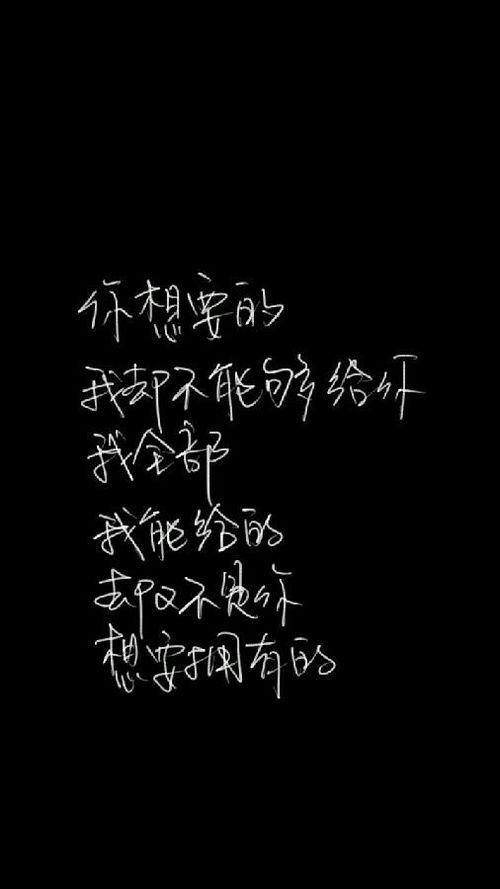 你想要的
我却不能够给你
我全部
我能给的
却又不是你
想要拥有的